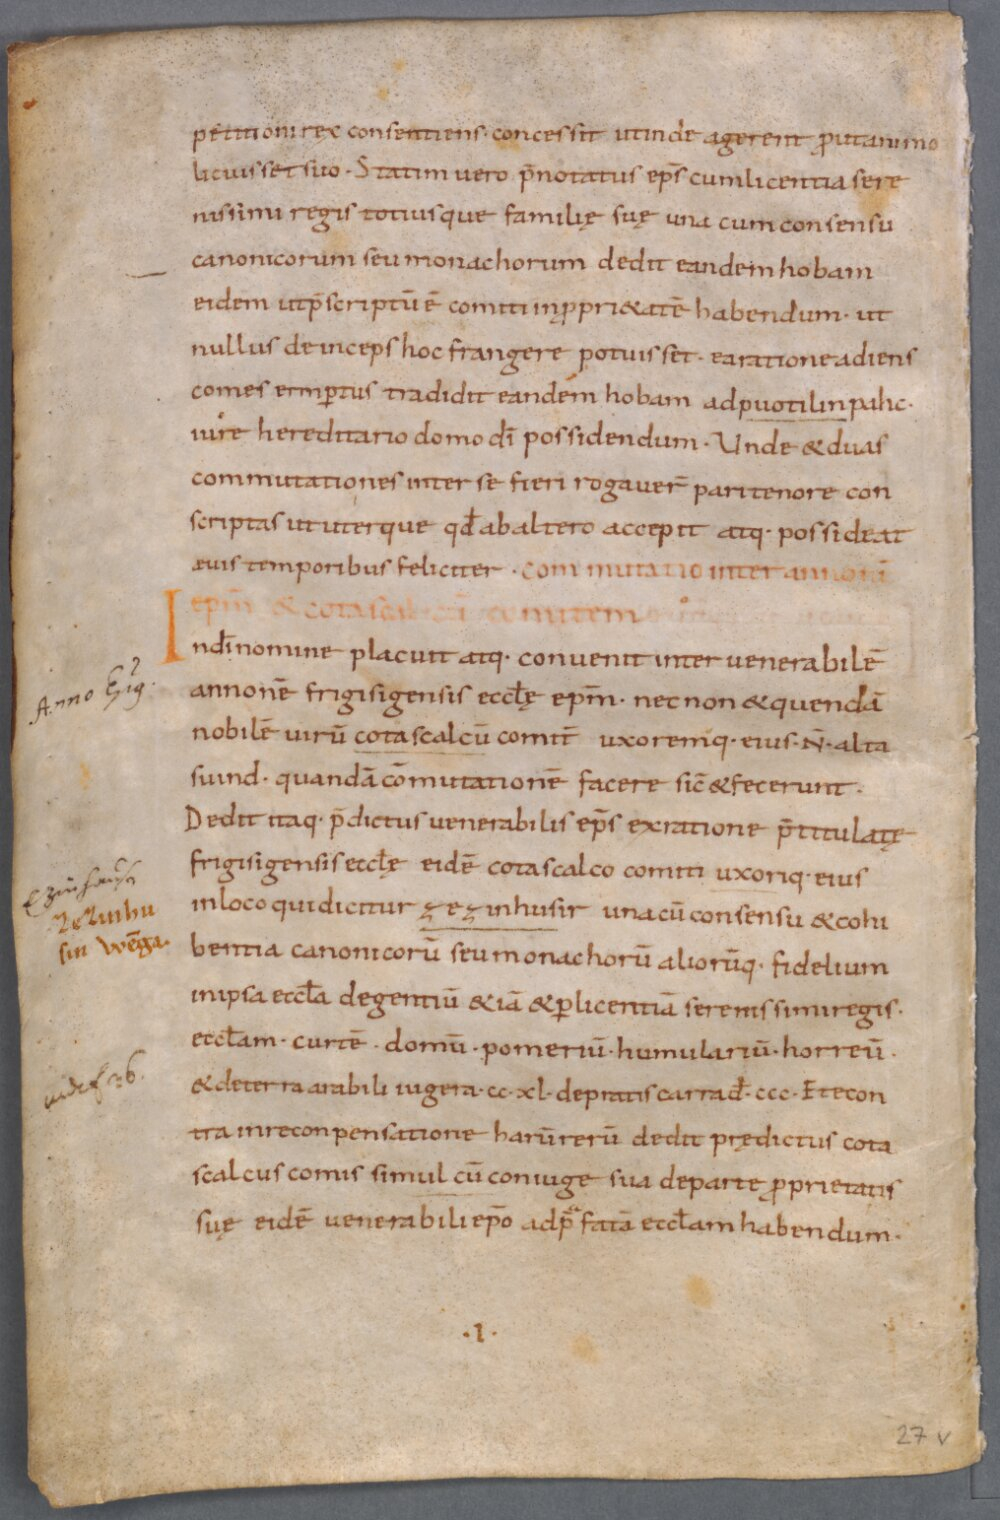 petitioni rex consentiens· concessit ut inde agerent p̄ut animo
licuisset suo· Statim uero p̄notatus ep̄s cum licentia sere
nissimi regis totiusque familię suę una cum consensu
canonicorum seu monachorum dedit eandem hobam
eidem ut p̄scriptū ē comiti in ꝓpri&atē habendum· ut
nullus deinceps hoc frangere potuisset· ea ratione adiens
comes tradidit eandem hobam ad puotilinpahc·
iure hereditario domo dī possidendum· Unde & duas
commutationes inter se fieri rogauer̄ pari tenore con
scriptas ut uterque qđ ab altero accepit atq· possideat
æuis temporibus feliciter· commutatio inter annonē
ep̄m & cotascalcū comitem
In dī nomine placuit atq· conuenit inter uenerabilē
Anno Ep̄ig·
annonē frigisigensis eccłę ep̄m· nec non & quendā
nobilē uirū cotascalcū comit̄ uxoremq· eius· N̄· alta
suind· quandā cōmutationē facere sic̄ & fecerunt·
Dedit itaq· p̄dictus uenerabilis ep̄s ex ratione p̄titulatę
frigisigensis eccłę eidē cotascalco comiti uxoriq· eius
Ezinhausn
zezinhu
sin wēga·
in loco qui dicitur zezinhusir una cū consensu & cohi
bentia canonicorū seu monachorū aliorūq· fidelium
in ipsa eccła degentiū & iā & ꝑ licentiā serenissimi regis·
eccłam· curtē· domū· pomeriū· humulariū· horreū·
vide f. 26.
& de terra arabili iugera· cc· xl· de pratis carrađ· ccc· Et econ
tra in reconpensatione harū rerū dedit prędictus cota
scalcus comis simul cū coniuge sua de parte ꝓprietatis
suę eidē uenerabili ep̄o ad p̄fatā eccłam habendum·
·I·
27 v